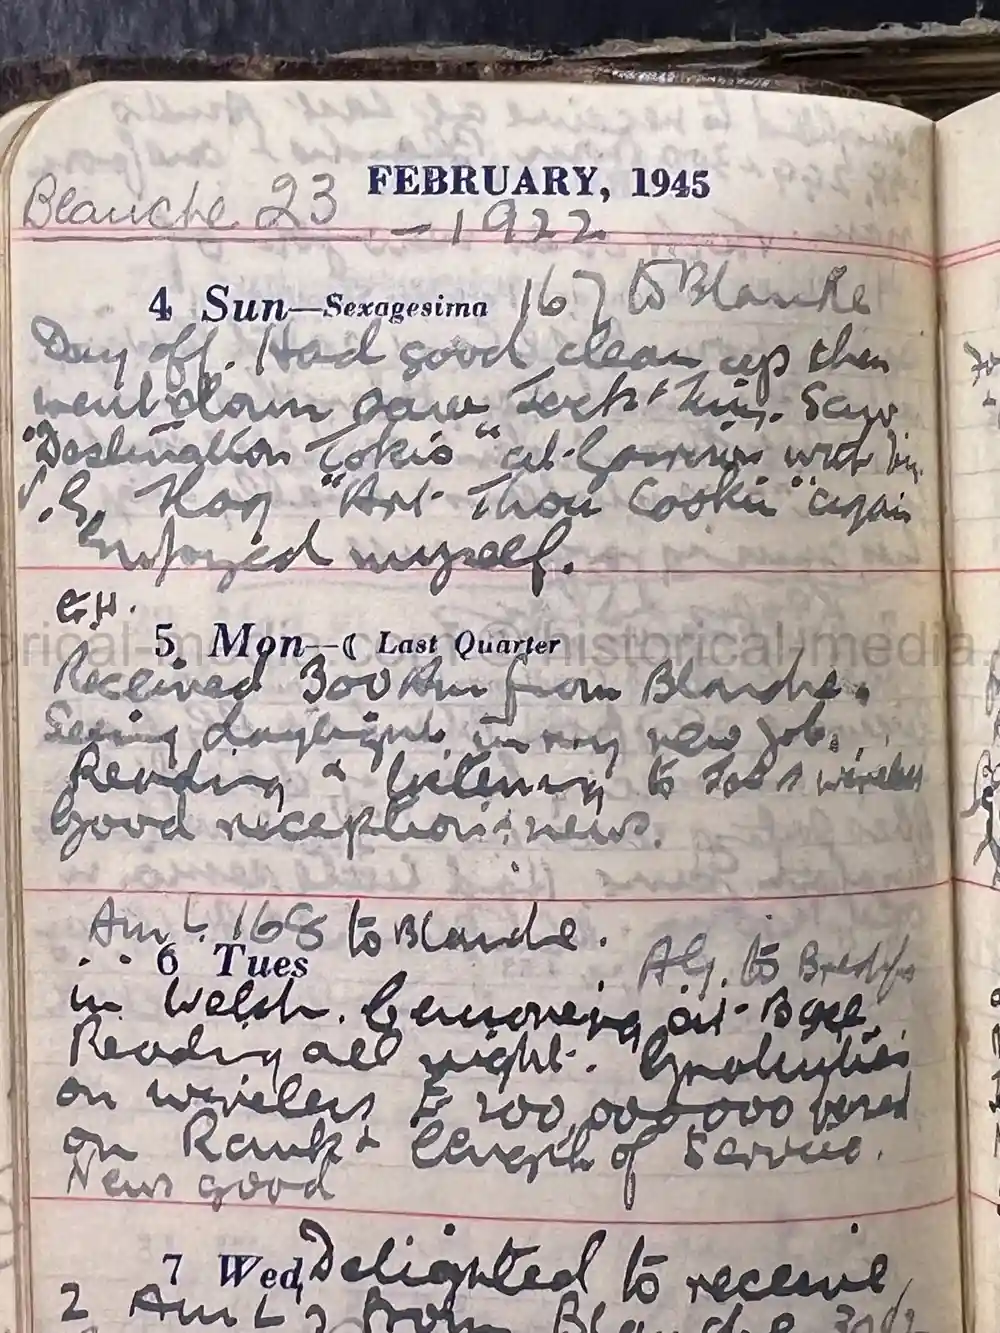 FEBRUARY, 1945
Blanche 23
— 1922
4 Sun—Sexagesima 167 to Blanche
Day off. Had good clean up then
went down saw Jack &
"Destination Tokio" at with
"Art Thou Cookin" again
Enjoyed myself.
G.H.
5 Mon—☾ Last Quarter
Received 300 Am from Blanche.
Seeing daylight in my new job.
Reading & listening to wireless
Good reception & news.
Am L. 168 to Blanche.
6 Tues
to
in Welsh. at Base
Reading all night. Gratuities
on wireless £ 200,000000 based
on Rank & length of Service.
News good
7 Wed Delighted to receive
2 Am L from Blanche
historical-media